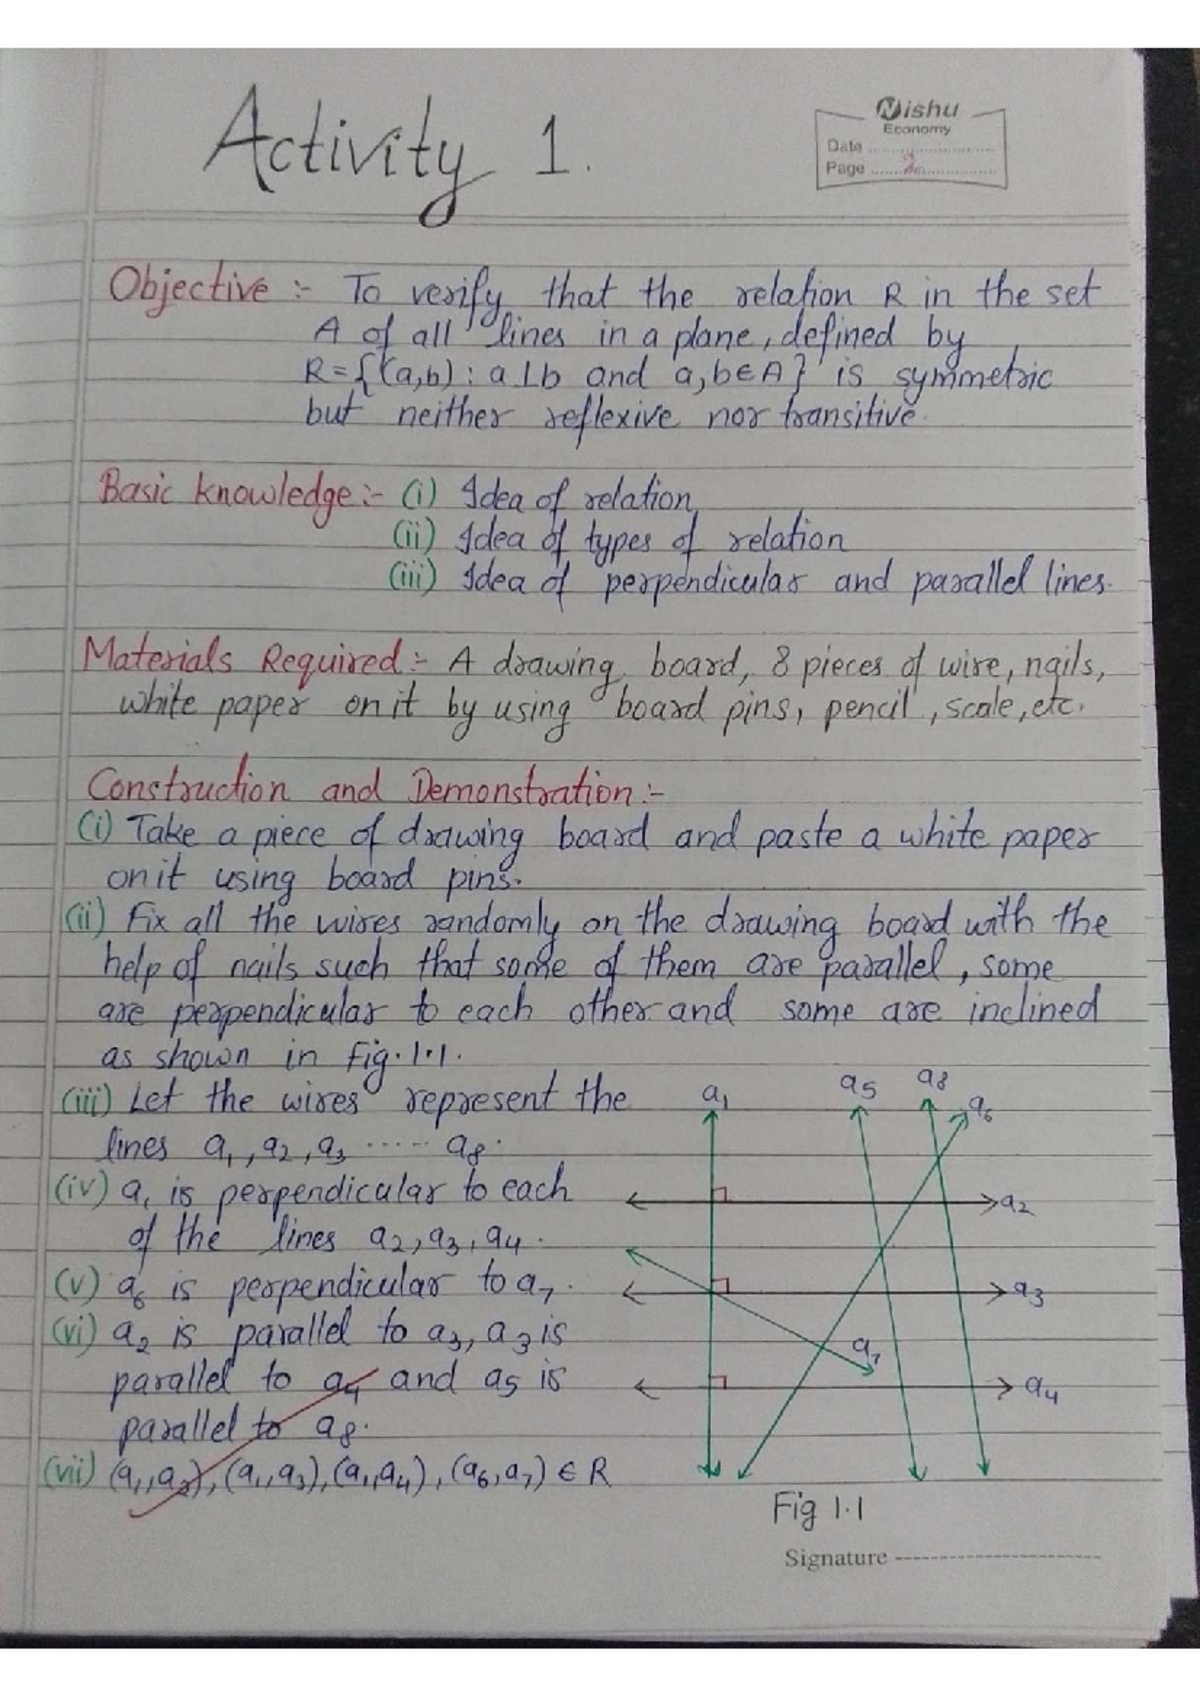 Activity 1.
Nishu
Economy
Date
Page
Objective :- To verify that the relation R in the set
A of all lines in a plane, defined by
R = {(a,b) : a ⊥ b and a, b ∈ A} is symmetric
but neither reflexive nor transitive.
Basic knowledge :- (i) Idea of relation
(ii) Idea of types of relation
(iii) Idea of perpendicular and parallel lines.
Materials Required :- A drawing board, 8 pieces of wire, nails,
white paper on it by using board pins, pencil, scale, etc.
Construction and Demonstration :-
(i) Take a piece of drawing board and paste a white paper
on it using board pins.
(ii) Fix all the wires randomly on the drawing board with the
help of nails such that some of them are parallel, some
are perpendicular to each other and some are inclined
as shown in Fig. 1.1.
(iii) Let the wires represent the
lines a₁, a₂, a₃ ...... a₈.
(iv) a₁ is perpendicular to each
of the lines a₂, a₃, a₄.
(v) a₆ is perpendicular to a₇.
(vi) a₂ is parallel to a₃, a₃ is
parallel to a₄ and a₅ is
parallel to a₈.
(vii) (a₁, a₂), (a₁, a₃), (a₁, a₄), (a₆, a₇) ∈ R
a₁ a₅ a₈ a₆
a₂
a₃
a₇
a₄
Fig 1.1
Signature